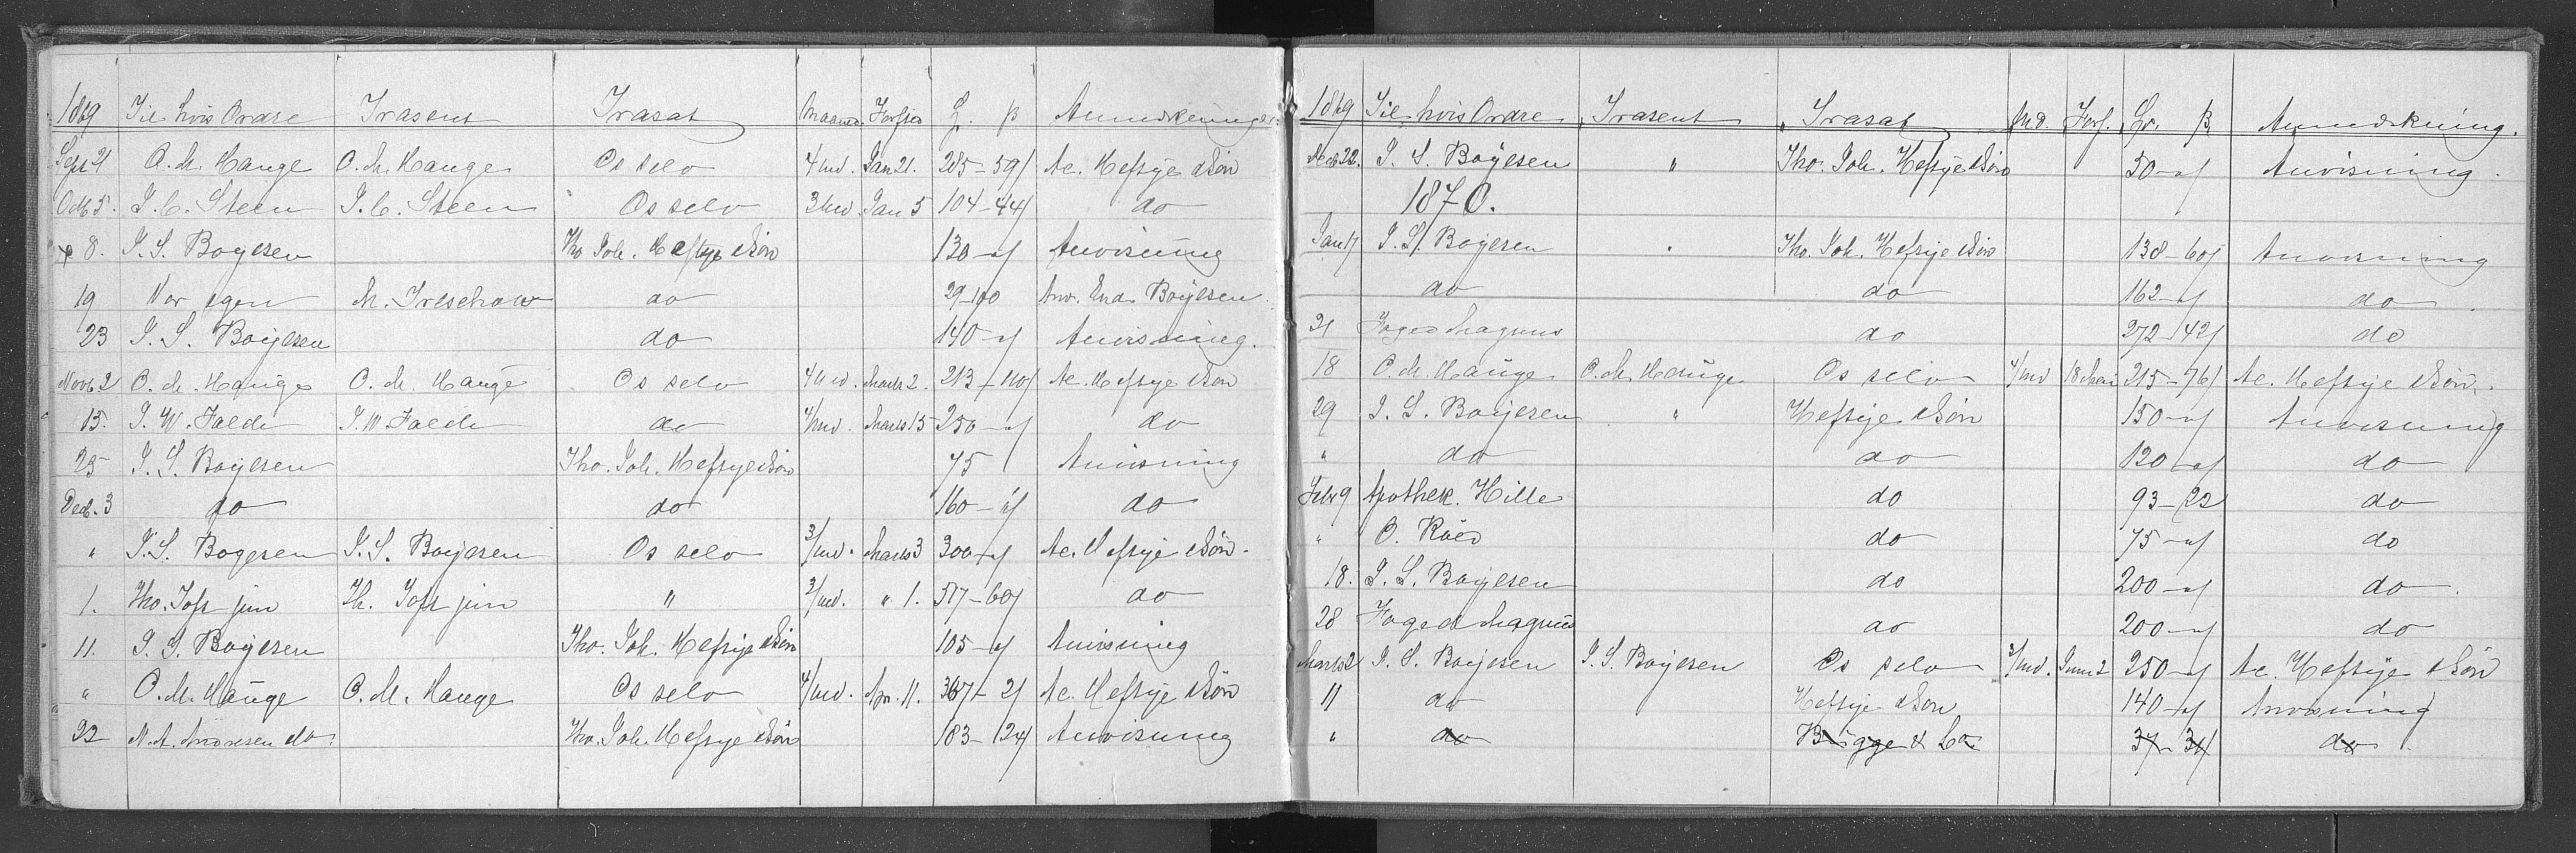 1869 Til hvis Ordre Trasent Trasat Maaned Forfse £. β Anmerkninger.
Sept 21 O. M. Hauge O. M. Hauge Os selv 4 md. Jan 21. 285-59/ Ac. Heftye & Søn
Octb 5. J. C. Steen J. C. Steen Os selv 3 md. Jan 5 104-44/ do
8. J. S. Boyesen Tho Joh. Heftye & Søn 130-"/ Anvisning
19 Vor egen M. Treschow do 29-100 Anv. End. Boyesen.
23 J. S. Boyesen do 140-"/ Anvisning.
Novb 2 O. M. Hauge O. M. Hauge Os selv 4 md. Marts 2. 213-110/ Ac. Heftye & Søn
15. J. W. Falde J. W. Falde do 4/md. Marts 15 250-"/ do
25 J. S. Boyesen Tho. Joh. Heftye & Søn 75 Anvisning
Decb. 3 do do 160-"/ do
" J. S. Boyesen J. S. Boyesen Os selv 3/md. Marts 3 300-"/ Ac. Heftye & Søn.
1. Tho. Joft jun Th. Joft jun " 3/md. " 1. 517-60/ do
11. J. S. Boyesen Tho. Joh. Heftye & Søn 105-"/ Anvisning
" O. M. Hauge O. M. Hauge Os selv 4/md. Apr. 11. 367-2/ Ac. Heftye & Søn
22 N. A. Andresen do. Tho. Joh. Heftye & Søn 183-24/ Anvisning
1869 Til hvis Ordre Trasent Trasat Md. Forf. β Anmerkning.
Decb 22. J. S. Boyesen " Tho. Joh. Heftye & Søn 50-"/ Anvisning.
1870.
Jan 17 J. S. Boyesen " Tho. Joh. Heftye & Søn 138-60/ Anvisning
do do 162-"/ do
21 Foged Magnus do 272-42/ do
18 O. M. Hauge O. M. Hauge Os selv 4/md 18 Mai 215-76/ Ac. Heftye & Søn.
29 J. S. Boyesen " Heftye & Søn 150-"/ Anvisning
" do do 120-"/ do
Febr 9 Apothek. Hille do 93-22 do
" O. Röed do 75-"/ do
18. J. S. Boyesen do 200-"/ do.
28 Foged Magnus do 200-"/ do
Marts 2 J. S. Boyesen J. S. Boyesen Os selv 3/md. Juni 2 250-"/ Ac. Heftye & Søn
11 do Heftye & Søn 140-"/ Anvisning
" do Bügge & Co 37-31/ do.